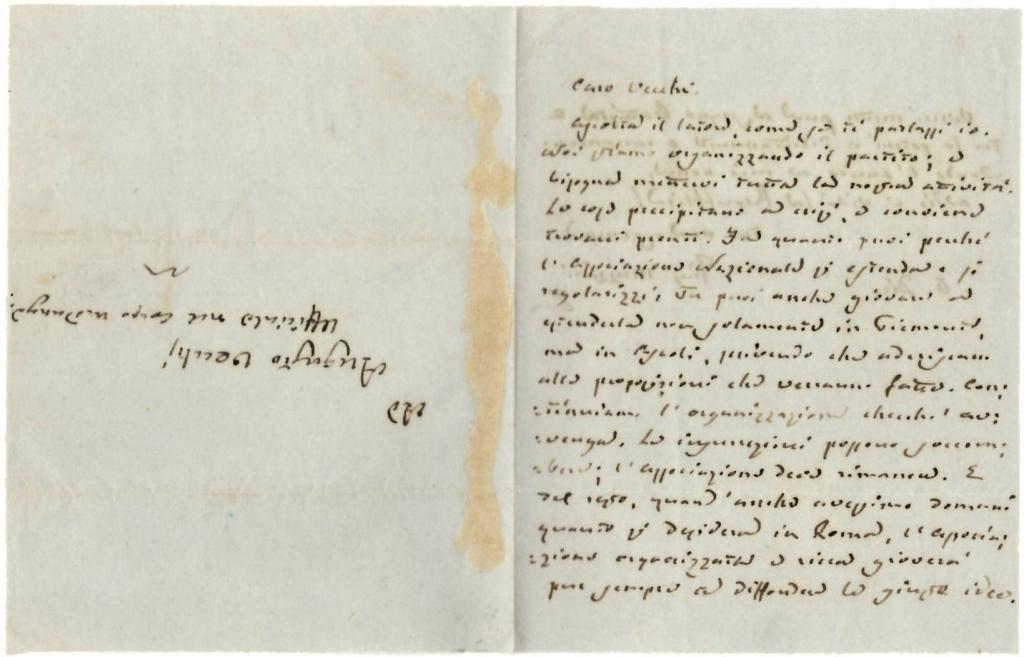 Caro Vecchi.
Ascolta il latore, come se ti parlassi io.
Noi stiamo organizzando il partito; e
bisogna mettervi tutta la nostra attività.
Le cose precipitano a crisi, e conviene
trovarci pronti. Fa quanto puoi perché
l'Associazione Nazionale si estenda e si
regolarizzi: tu puoi anche giovare ad
estenderla non solamente in Piemonte,
ma in Ascoli, scrivendo che aderiscano
alle proposizioni che verranno fatte. Con:
:tinuiamo l'organizzazione checché av:
:venga. Le insurrezioni possono soccom:
:bere; l'Associazione deve rimanere. E
del resto, quand'anche avessimo domani
quanto si desidera in Roma, l'Associa:
:zione organizzata e ricca gioverà
pur sempre a diffondere le giuste idee.
Ad
Augusto Vecchj
Ufficiale nel Corpo